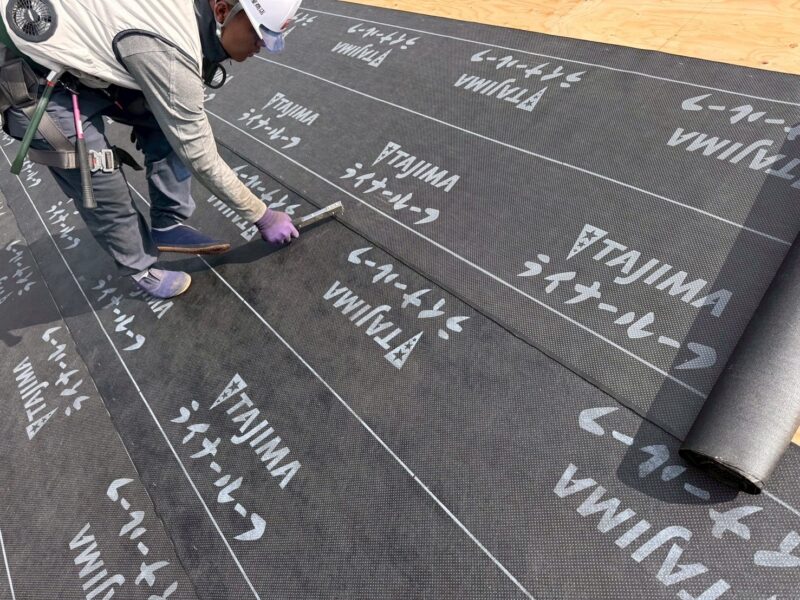 TAJIMA
ライナールーフ
TAJIMA
ライナールーフ
TAJIMA
ライナールーフ
TAJIMA
ライナールーフ
TAJIMA
ライナールーフ
TAJIMA
ライナールーフ
TAJIMA
ライナールーフ
TAJIMA
ライナールーフ
TAJIMA
ライナールーフ
TAJIMA